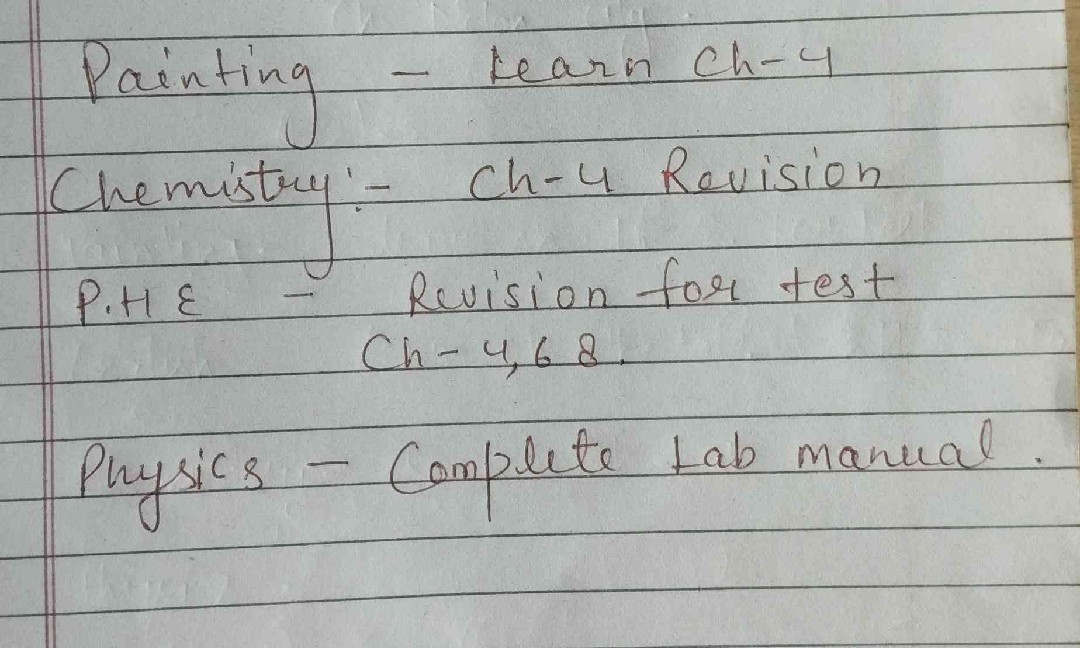 Painting - Learn Ch-4
Chemistry :- Ch-4 Revision
P.H E - Revision for test
Ch-4,6 8.
Physics - Complete Lab manual.